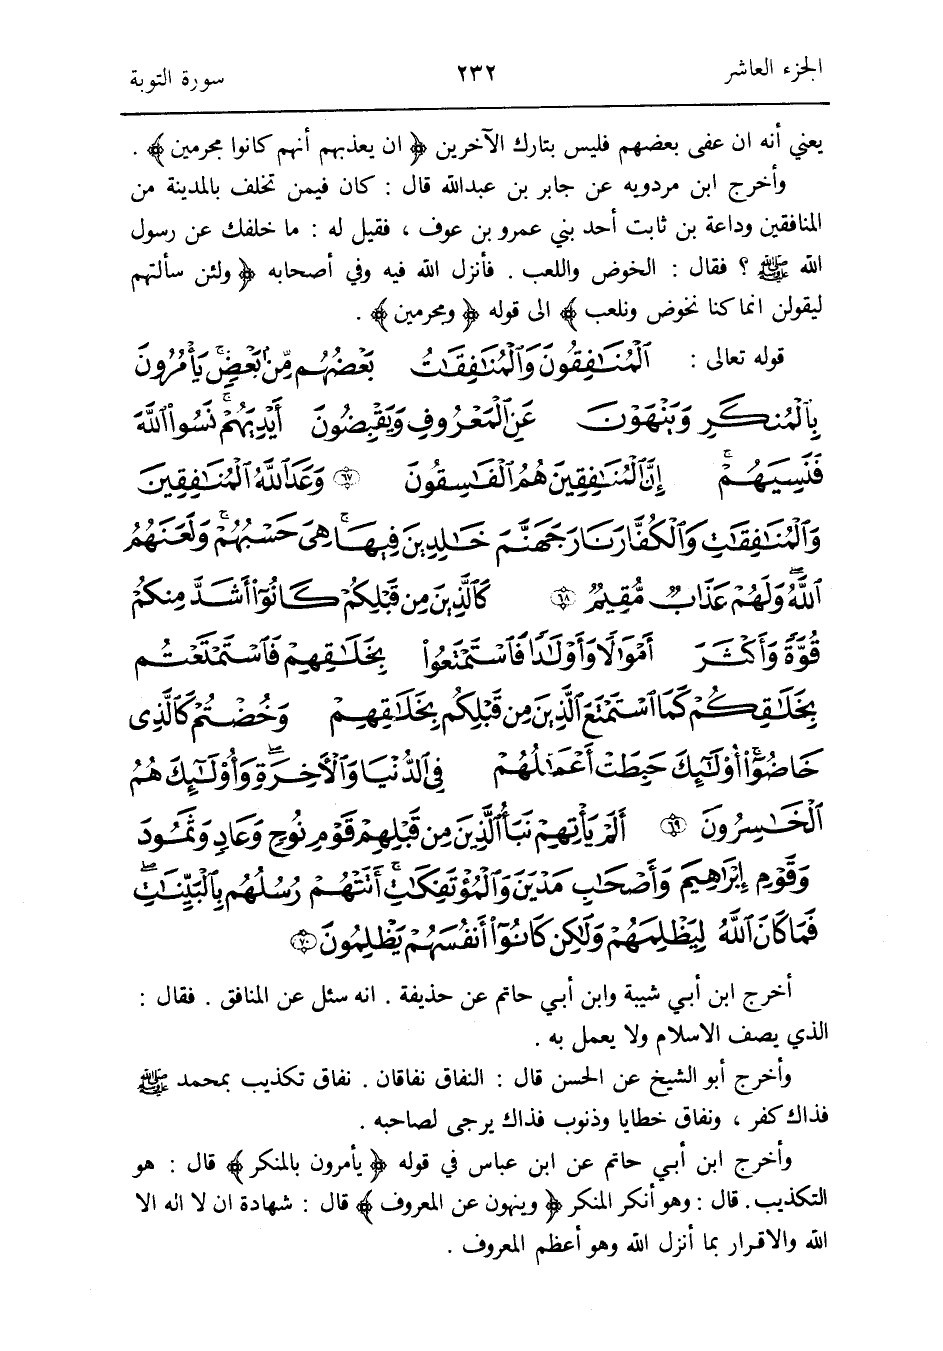 الجزء العاشر ٢٣٢ سورة التوبة
يعني أنه ان عفى بعضهم فليس بتارك الآخرين ﴿ ان يعذبهم أنهم كانوا مجرمين ﴾ .
وأخرج ابن مردويه عن جابر بن عبدالله قال : كان فيمن تخلف بالمدينة من
المنافقين وداعة بن ثابت أحد بني عمرو بن عوف ، فقيل له : ما خلفك عن رسول
الله ﷺ ؟ فقال : الخوض واللعب . فأنزل الله فيه وفي أصحابه ﴿ ولئن سألتهم
ليقولن انما كنا نخوض ونلعب ﴾ الى قوله ﴿ ومجرمين ﴾ .
قوله تعالى : ٱلْمُنَٰفِقُونَ وَٱلْمُنَٰفِقَٰتُ بَعْضُهُم مِّنۢ بَعْضٍۚ يَأْمُرُونَ
بِٱلْمُنكَرِ وَيَنْهَوْنَ عَنِ ٱلْمَعْرُوفِ وَيَقْبِضُونَ أَيْدِيَهُمْۚ نَسُوا۟ ٱللَّهَ
فَنَسِيَهُمْۚ إِنَّ ٱلْمُنَٰفِقِينَ هُمُ ٱلْفَٰسِقُونَ ۝٦٧ وَعَدَ ٱللَّهُ ٱلْمُنَٰفِقِينَ
وَٱلْمُنَٰفِقَٰتِ وَٱلْكُفَّارَ نَارَ جَهَنَّمَ خَٰلِدِينَ فِيهَاۚ هِىَ حَسْبُهُمْۚ وَلَعَنَهُمُ
ٱللَّهُۖ وَلَهُمْ عَذَابٌ مُّقِيمٌ ۝٦٨ كَٱلَّذِينَ مِن قَبْلِكُمْ كَانُوٓا۟ أَشَدَّ مِنكُمْ
قُوَّةً وَأَكْثَرَ أَمْوَٰلًا وَأَوْلَٰدًا فَٱسْتَمْتَعُوا۟ بِخَلَٰقِهِمْ فَٱسْتَمْتَعْتُم
بِخَلَٰقِكُمْ كَمَا ٱسْتَمْتَعَ ٱلَّذِينَ مِن قَبْلِكُم بِخَلَٰقِهِمْ وَخُضْتُمْ كَٱلَّذِى
خَاضُوٓا۟ۚ أُو۟لَٰٓئِكَ حَبِطَتْ أَعْمَٰلُهُمْ فِى ٱلدُّنْيَا وَٱلْأَخِرَةِۖ وَأُو۟لَٰٓئِكَ هُمُ
ٱلْخَٰسِرُونَ ۝٦٩ أَلَمْ يَأْتِهِمْ نَبَأُ ٱلَّذِينَ مِن قَبْلِهِمْ قَوْمِ نُوحٍ وَعَادٍ وَثَمُودَ
وَقَوْمِ إِبْرَٰهِيمَ وَأَصْحَٰبِ مَدْيَنَ وَٱلْمُؤْتَفِكَٰتِۚ أَتَتْهُمْ رُسُلُهُم بِٱلْبَيِّنَٰتِۖ
فَمَا كَانَ ٱللَّهُ لِيَظْلِمَهُمْ وَلَٰكِن كَانُوٓا۟ أَنفُسَهُمْ يَظْلِمُونَ ۝٧٠
أخرج ابن أبي شيبة وابن أبي حاتم عن حذيفة . انه سئل عن المنافق . فقال :
الذي يصف الاسلام ولا يعمل به .
وأخرج أبو الشيخ عن الحسن قال : النفاق نفاقان . نفاق تكذيب بمحمد ﷺ
فذاك كفر ، ونفاق خطايا وذنوب فذاك يرجى لصاحبه .
وأخرج ابن أبي حاتم عن ابن عباس في قوله ﴿ يأمرون بالمنكر ﴾ قال : هو
التكذيب. قال : وهو أنكر المنكر ﴿ وينهون عن المعروف ﴾ قال : شهادة ان لا اله الا
الله والاقرار بما أنزل الله وهو أعظم المعروف .